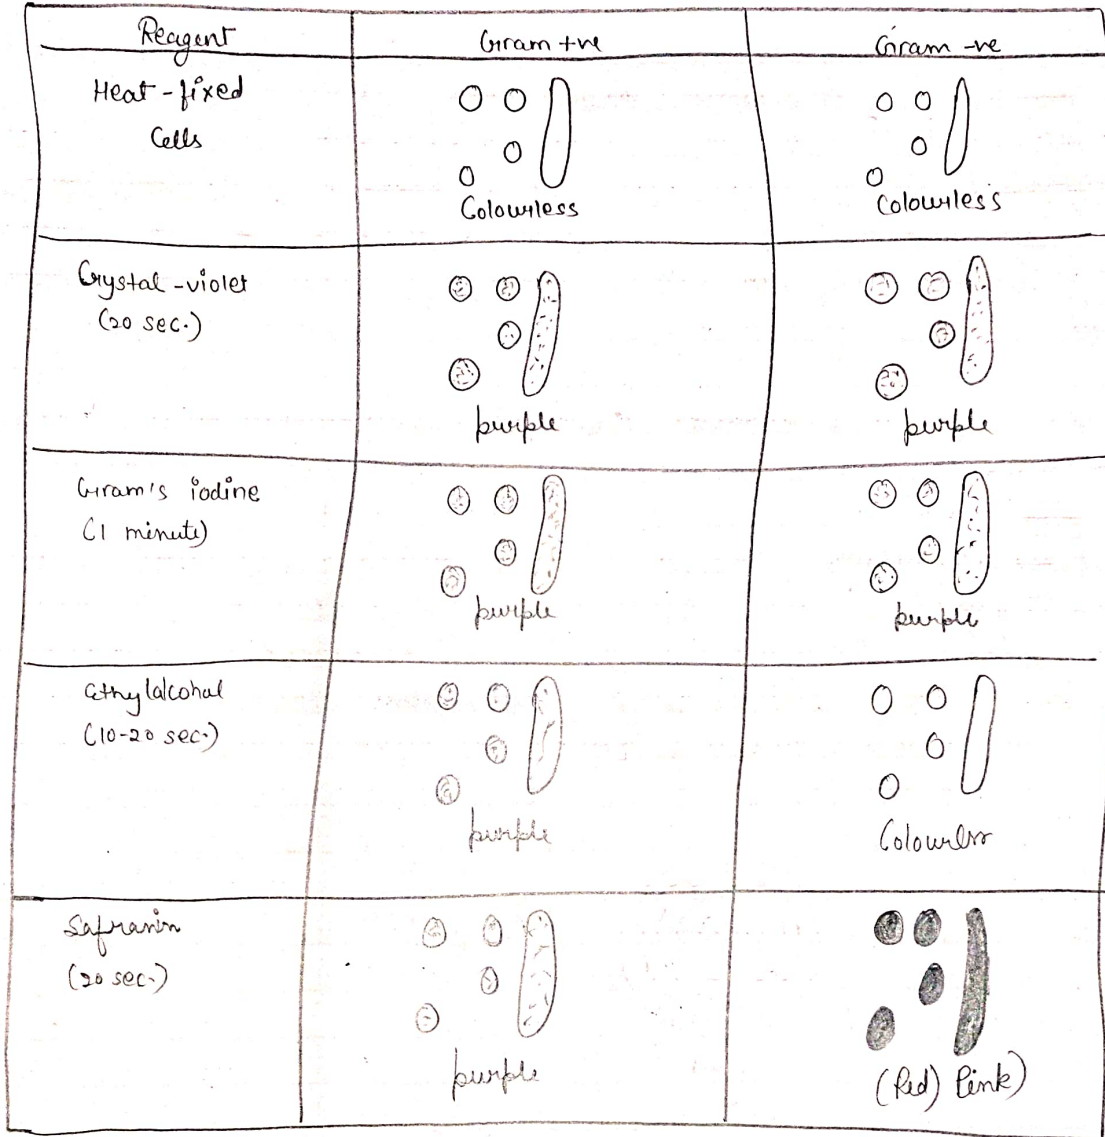 Reagent
Gram +ve
Gram -ve
Heat-fixed
Cells
Colourless
Colourless
Crystal-violet
(20 sec.)
purple
purple
Gram's iodine
(1 minute)
purple
purple
Ethylalcohal
(10-20 sec.)
purple
Colourless
Safranin
(20 sec.)
purple
(Red) Pink)